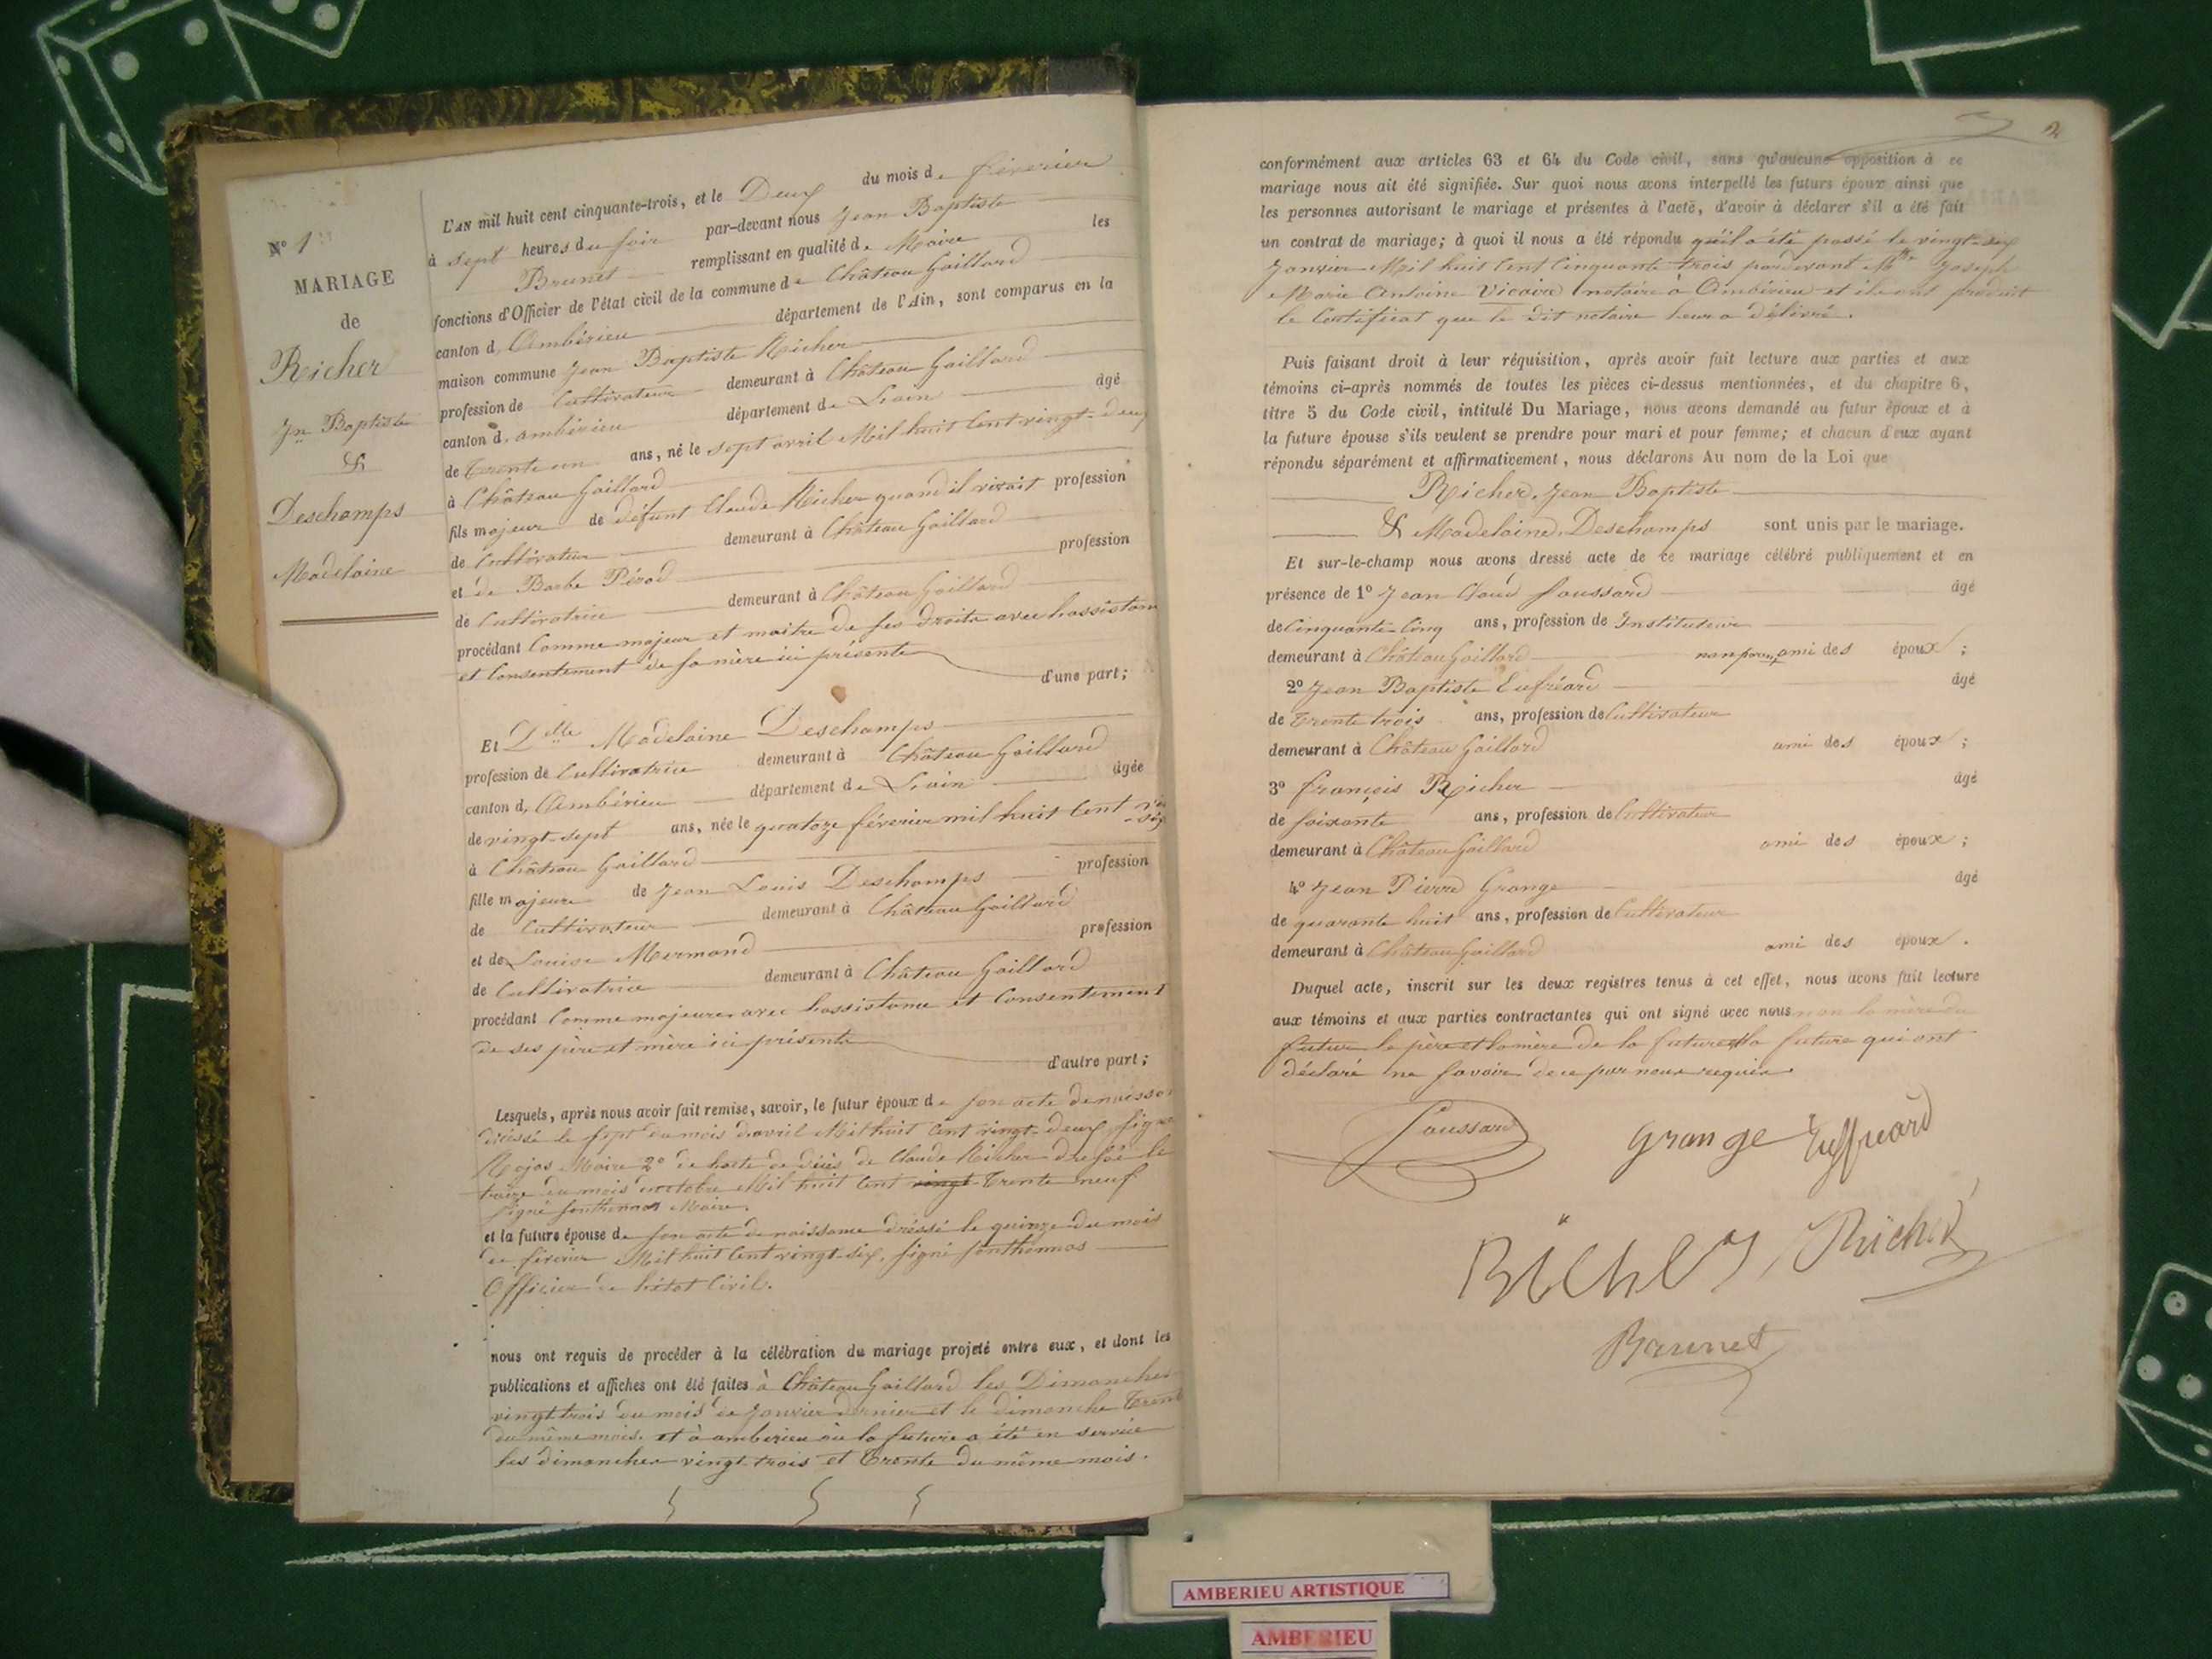 N° 1
MARIAGE
de
Richer
Jn Baptiste
&
Deschamps
Madelaine
L'AN mil huit cent cinquante-trois, et le Deux du mois de février
à sept heures du soir par-devant nous Jean Baptiste
Brunet remplissant en qualité de Maire les
fonctions d'Officier de l'état civil de la commune de Château Gaillard
canton d, Ambérieu département de l'Ain, sont comparus en la
maison commune Jean Baptiste Richer
profession de Cultivateur demeurant à Château Gaillard
canton d, ambérieu département de Lain âgé
de trente un ans, né le sept avril Mil huit Cent vingt-deux
à Château Gaillard
fils majeur de défunt Claude Richer quand il vivait profession
de Cultivateur demeurant à Château Gaillard
et de Barbe Pérod profession
de Cultivatrice demeurant à Château Gaillard
procédant Comme majeur et maitre de ses droits avec lassistan
et Consentement de sa mère ici présente d'une part;
Et Delle Madelaine Deschamps
profession de Cultivatrice demeurant à Château Gaillard
canton d, Ambérieu département de Lain âgée
de vingt-sept ans, née le quatoze février mil huit Cent
à Château Gaillard
fille majeure de Jean Louis Deschamps profession
de Cultivateur demeurant à Château Gaillard
et de Louise Mermand profession
de Cultivatrice demeurant à Château Gaillard
procédant Comme majeure avec lassistance et Consentement
de ses père et mère ici présents d'autre part;
Lesquels, après nous avoir fait remise, savoir, le futur époux de son acte de naissa
dressé le sept du mois davril Mil huit Cent vingt-deux, signé
Maire 2° de lacte de décès de Claude Richer dressé le
du mois doctobre Mil huit Cent vingt Trente neuf
signé Maire.
et la future épouse de son acte de naissance dréssé le quinze du mois
de février Mil huit Cent vingt-six, signé
Officier de létat Civil.
nous ont requis de procéder à la célébration du mariage projeté entre eux, et dont les
publications et affiches ont été faites à Château Gaillard les Dimanches
vingt trois du mois de Janvier dernier et le dimanche Trente
du même mois. et à amberieu où la future a été en service
les dimanches vingt-trois et Trente du même mois.
2
conformément aux articles 63 et 64 du Code civil, sans qu'aucune opposition à ce
mariage nous ait été signifiée. Sur quoi nous avons interpellé les futurs époux ainsi que
les personnes autorisant le mariage et présentes à l'acte, d'avoir à déclarer s'il a été fait
un contrat de mariage; à quoi il nous a été répondu quil a été passé le vingt-six
Janvier Mil huit Cent Cinquante trois pardevant Mtre Joseph
Marie Antoine Vicaire notaire à Ambérieu et ils ont produit
le Certificat que le dit notaire leur a délivré.
Puis faisant droit à leur réquisition, après avoir fait lecture aux parties et aux
témoins ci-après nommés de toutes les pièces ci-dessus mentionnées, et du chapitre 6,
titre 5 du Code civil, intitulé Du Mariage, nous avons demandé au futur époux et à
la future épouse s'ils veulent se prendre pour mari et pour femme; et chacun d'eux ayant
répondu séparément et affirmativement, nous déclarons Au nom de la Loi que
Richer, Jean Baptiste
& Madelaine Deschamps sont unis par le mariage.
Et sur-le-champ nous avons dressé acte de ce mariage célébré publiquement et en
présence de 1° Jean Claud Poussard âgé
de Cinquante-Cinq ans, profession de Instituteur
demeurant à Château Gaillard ami des époux;
2° Jean Baptiste Eufréard âgé
de trente trois ans, profession de Cultivateur
demeurant à Château Gaillard ami des époux;
3° françois Richer âgé
de soixante ans, profession de Cultivateur
demeurant à Château Gaillard ami des époux;
4° Jean Pierre Grange âgé
de quarante huit ans, profession de Cultivateur
demeurant à Château Gaillard ami des époux.
Duquel acte, inscrit sur les deux registres tenus à cet effet, nous avons fait lecture
aux témoins et aux parties contractantes qui ont signé avec nous non la mère du
futur le père et la mère de la future et la future qui ont
déclaré ne savoir de ce par nous requis.
Poussard grange Euffreard
Richer Richer
Brunet
AMBERIEU ARTISTIQUE
AMBERIEU